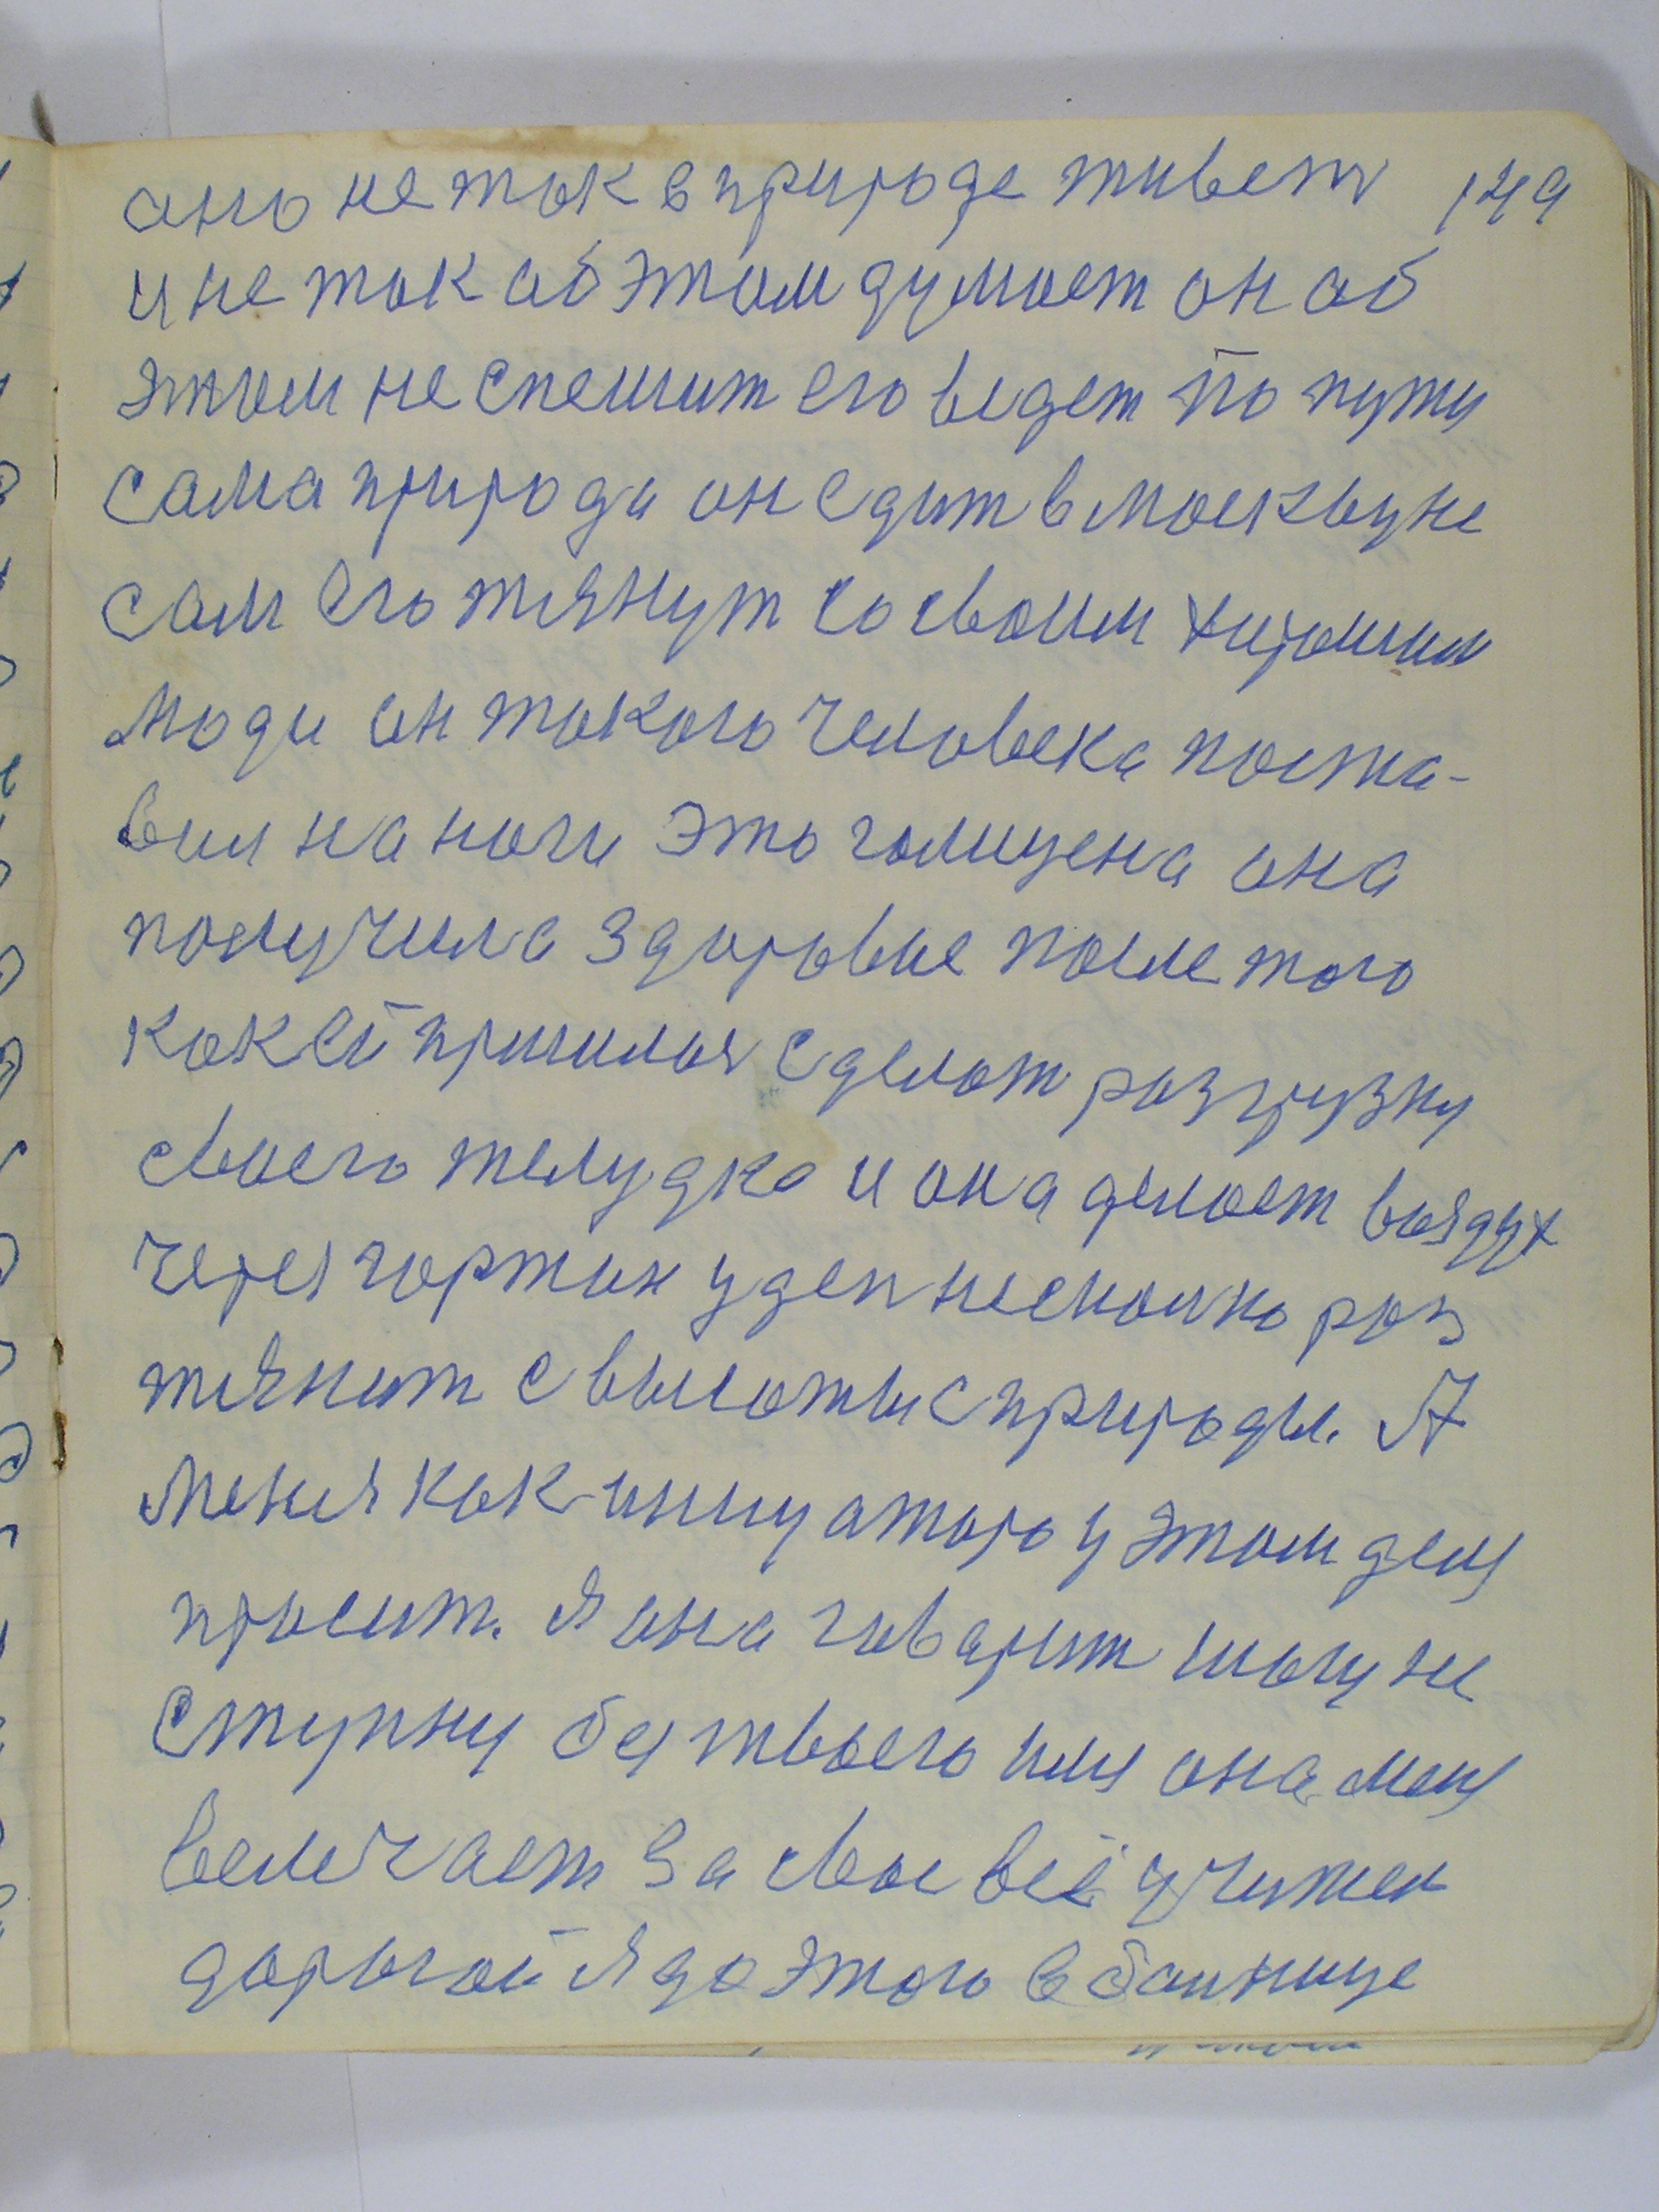 оно не так в природе живет 149
и не так об этом думает он об
этом не спешит его ведет по пути
сама природа он едит в москву не
сам его тянут со своим хирошим
люди он такого человека поста-
вил на ноги это галицена она
получила здоровье после того
как ей пришлось сделат разгрузку
своего желудка и она делает воздух
через гортан удел несколко раз
тянит с высоты с природы. А
меня как инициатора у этом делу
просит. Я она говарит шагу не
ступну без твоего имя она меня
величает за свое всё учител
дорогой я до этого в болнице